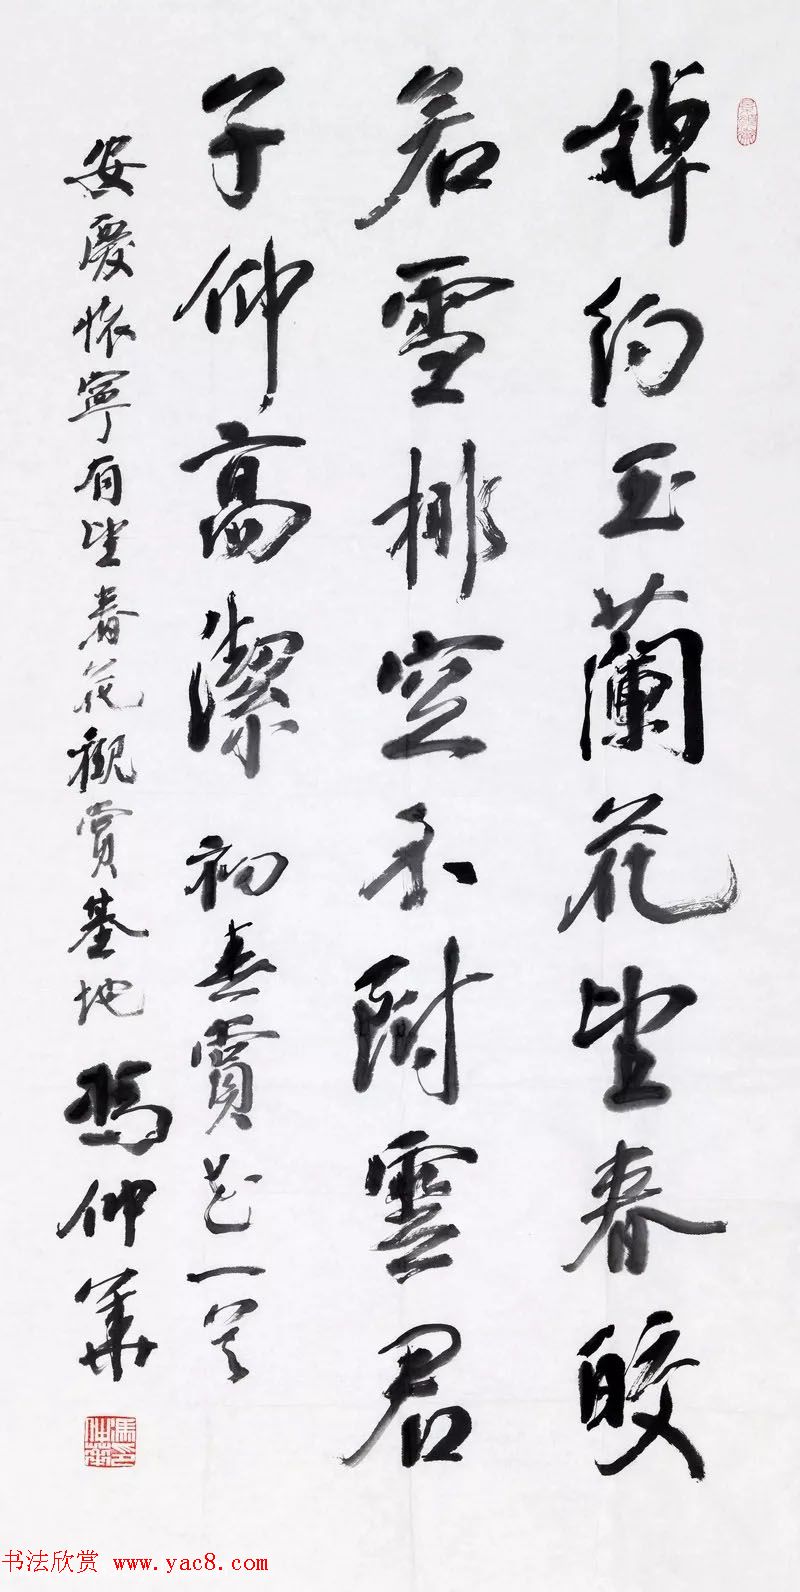 綽約玉蘭花望春皎
若雪排空不附雲君
子仰高潔 初春賞花一首
安慶懷寧有望春花觀賞基地 馮仲華
书法欣赏 www.yac8.com